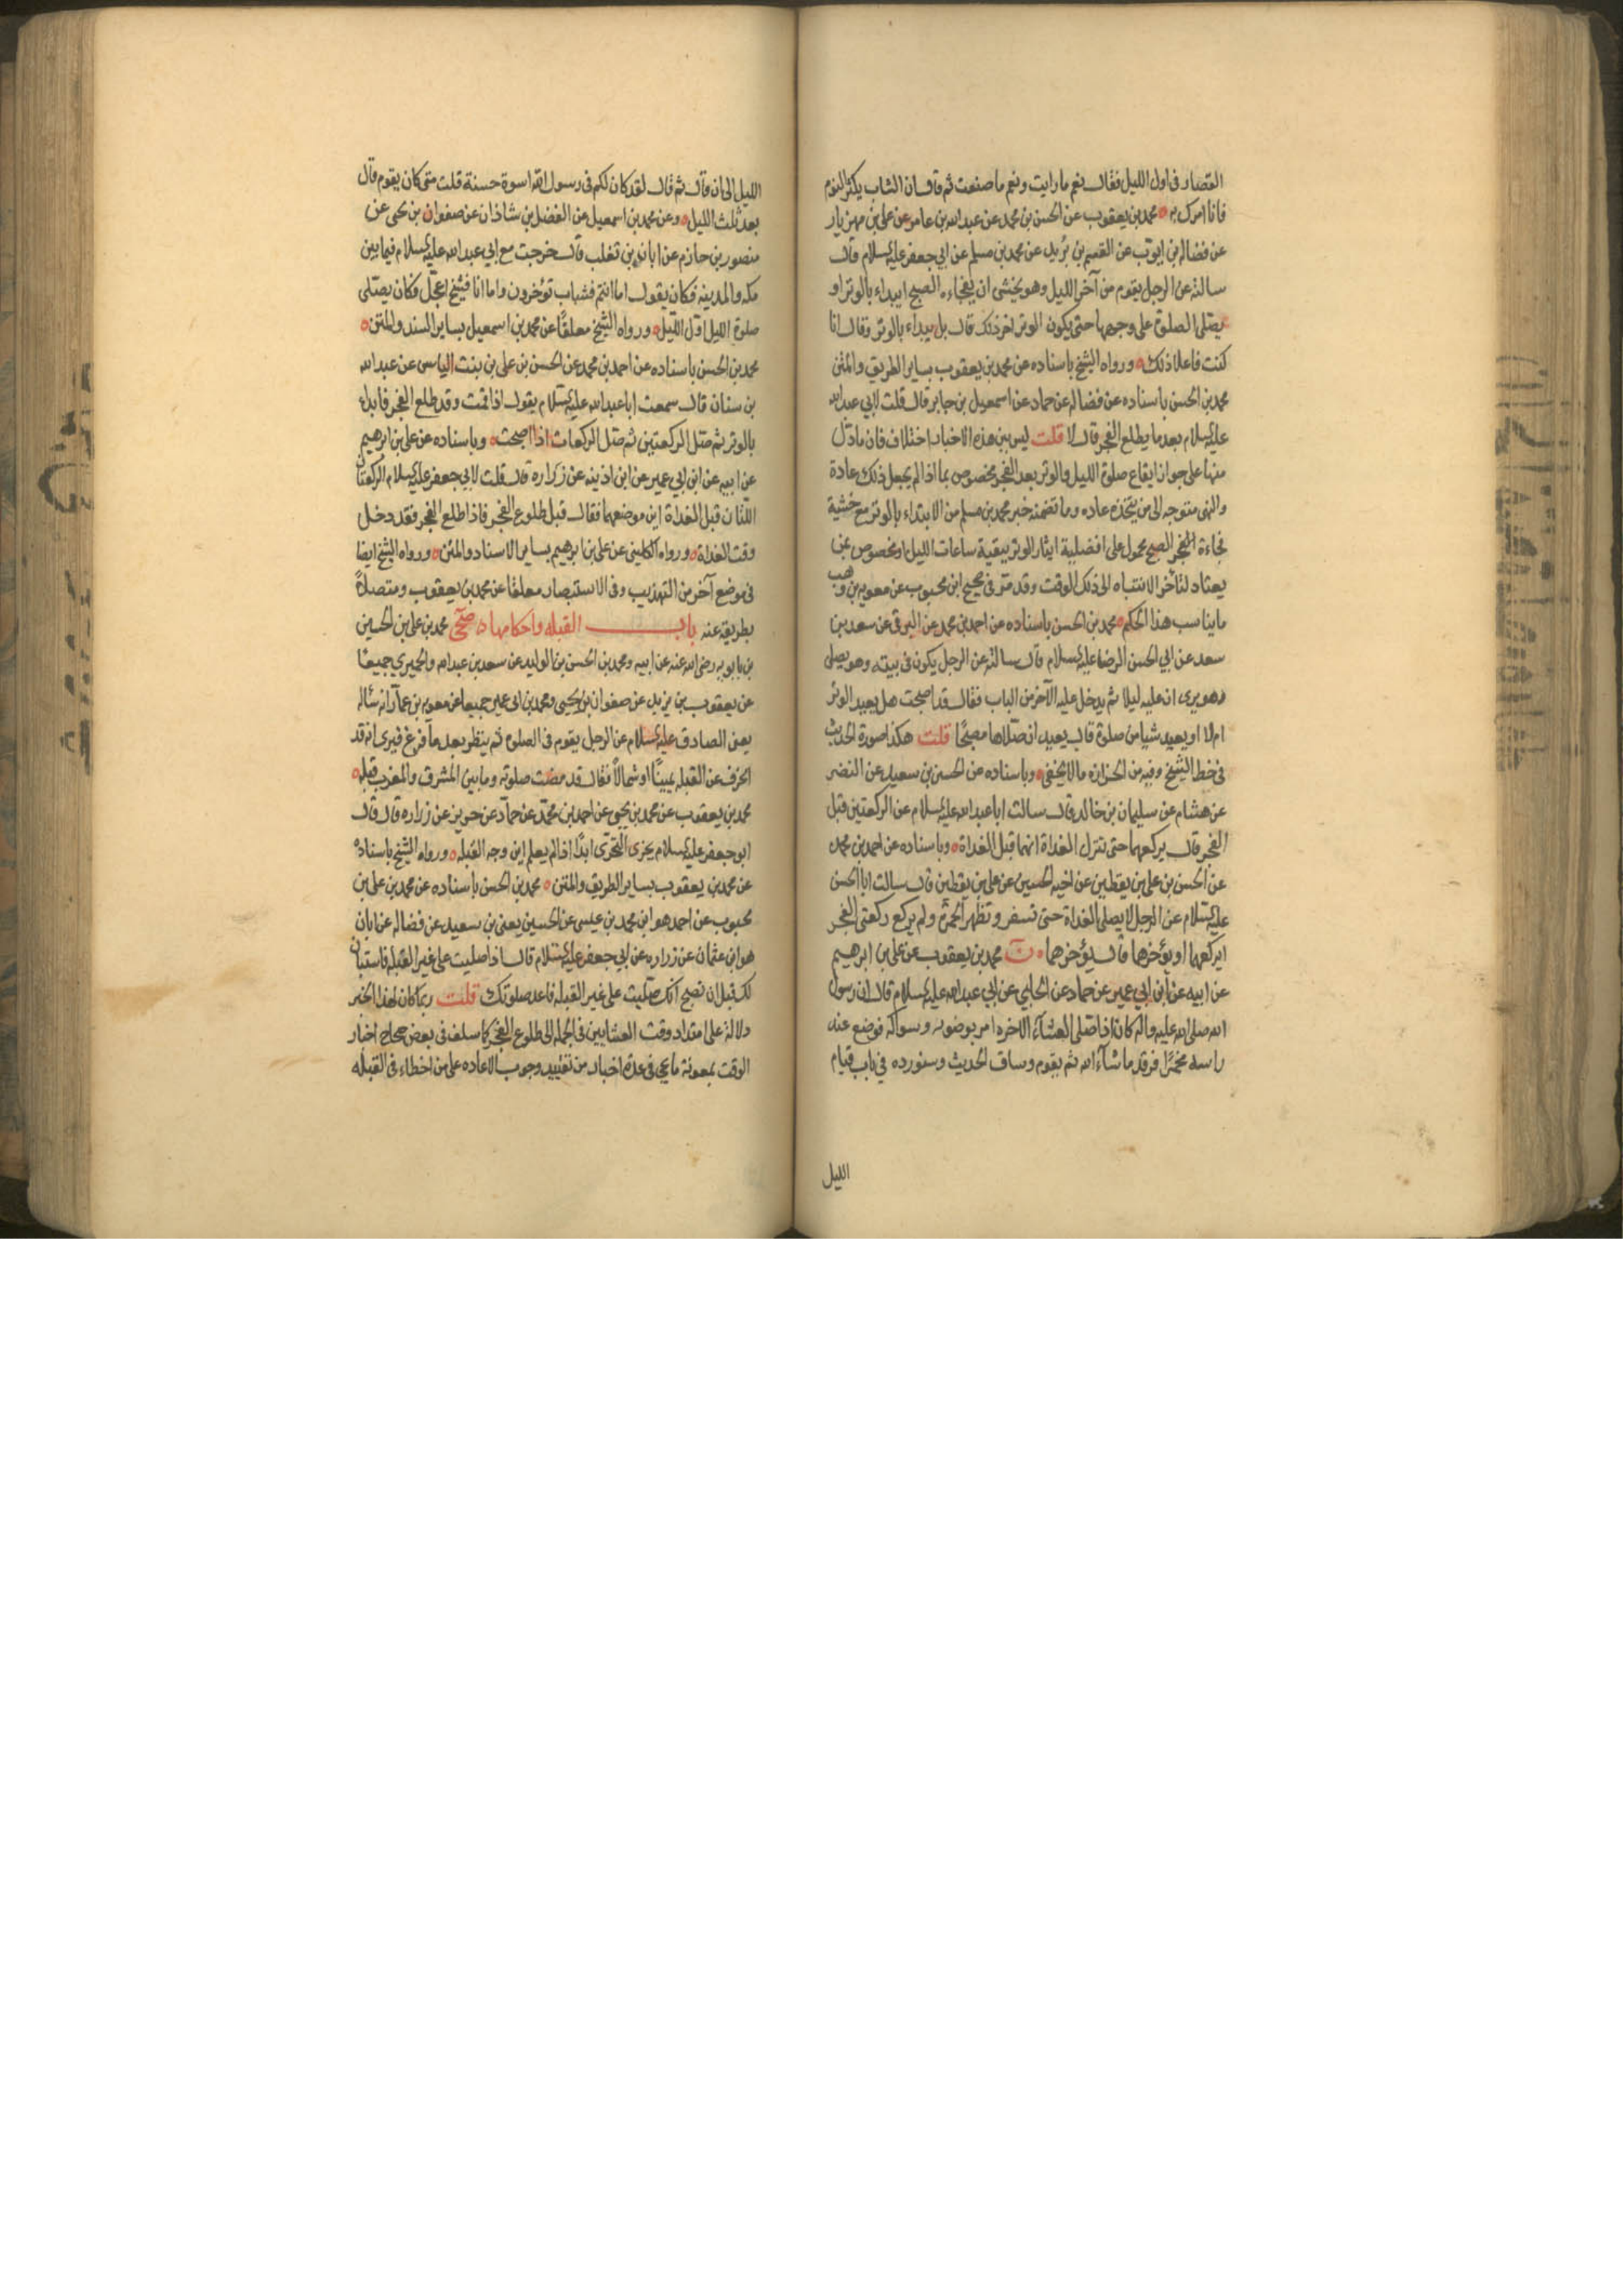 القصار في اول الليل فقال نعم ما رايت ونعم ما صنعت ثم قال ان الشاب يكثر النوم
فانا امرك به ه محمد بن يعقوب عن الحسن بن محمد عن عبد الله بن عامر عن علي بن مهزيار
عن فضاله بن ايوب عن القسم بن بريد عن محمد بن مسلم عن ابي جعفر عليه السلام قال
سالته عن الرجل يقوم من آخر الليل وهو يخشى ان يفجاءه الصبح ايبداء بالوتر او
يصلي الصلوة على وجهها حتى يكون الوتر اخر ذلك قال بل يبداء بالوتر وقال انا
كنت فاعلا ذلك ه ورواه الشيخ باسناده عن محمد بن يعقوب بساير الطريق والمتن
محمد بن الحسن باسناده عن فضاله عن حماد عن اسمعيل بن جابر قال قلت لابي عبد الله
عليه السلام بعد ما يطلع الفجر قال لا قلت ليس بين هذه الاخبار اختلاف فان ما دل
منها على جواز ايقاع صلوة الليل والوتر بعد الفجر مخصوص بما اذا لم يجعل ذلك عادة
والنهى متوجه الى من يتخذه عاده وما تضمنه خبر محمد بن مسلم من الابتداء بالوتر مع خشية
فجاءة الفجر الصبح محمول على افضلية ايثار الوتر ببقية ساعات الليل او مخصوص بمن
يعتاد لتاخر الانتباه الى ذلك الوقت وقد مر في صحيح ابن محبوب عن معويه بن وهب
ما يناسب هذا الحكم ه محمد بن الحسن باسناده عن احمد بن محمد عن البرقي عن سعد بن
سعد عن ابي الحسن الرضا عليه السلام قال سالته عن الرجل يكون في بيته وهو يصلى
وهو يرى ان عليه ليلا ثم يدخل عليه الآخر من الباب فقال قد اصبحت هل يعيد الوتر
ام لا او يعيد شيا من صلوة قال يعيد ان صلاها مصبحا قلت هكذا صورة الحديث
في خط الشيخ وفيه من الحزازه ما لا يخفى ه وباسناده عن الحسين بن سعيد عن النضر
عن هشام عن سليمان بن خالد قال سالت ابا عبد الله عليه السلام عن الركعتين قبل
الفجر قال يركعهما حتى تترك الغداة انهما قبل الغداة ه وباسناده عن احمد بن محمد
عن الحسن بن علي بن يقطين عن اخيه الحسين عن علي بن يقطين قال سالت ابا الحسن
عليه السلام عن الرجل لا يصلي الغداة حتى تسفر وتظهر الحمرة ولم يركع ركعتي الفجر
ايركعهما او يؤخرهما قال يؤخرهما ه ن محمد بن يعقوب عن علي بن ابرهيم
عن ابيه عن ابن ابي عمير عن حماد عن الحلبي عن ابي عبد الله عليه السلام قال ان رسول
الله صلى الله عليه واله كان اذا صلى العشاء الاخره امر بوضوئه وسواكه فوضع عند
راسه مخمرا فرقد ما شاء الله ثم يقوم وساق الحديث وسنورده في باب قيام
الليل
الليل الى ان قال ثم قال لقد كان لكم في رسول الله اسوة حسنة قلت متى كان يقوم قال
بعد ثلث الليل ه وعن محمد بن اسمعيل عن الفضل بن شاذان عن صفوان بن يحيى عن
منصور بن حازم عن ابان بن تغلب قال خرجت مع ابي عبد الله عليه السلام فيما بين
مكه والمدينه فكان يقول اما انتم فشباب تؤخرون واما انا فشيخ اعجل فكان يصلى
صلوة الليل اول الليل ه ورواه الشيخ معلقا عن محمد بن اسمعيل بساير السند والمتن ه
محمد بن الحسن باسناده عن احمد بن محمد عن الحسن بن علي بن بنت الياس عن عبد الله
بن سنان قال سمعت ابا عبد الله عليه السلام يقول اذا قمت وقد طلع الفجر فابدء
بالوتر ثم صل الركعتين ثم صل الركعات اذا اصبحت ه وباسناده عن علي بن ابرهيم
عن ابيه عن ابن ابي عمير عن ابن اذينه عن زراره قال قلت لابي جعفر عليه السلام الركعتان
اللتان قبل الغداة اين موضعهما فقال قبل طلوع الفجر فاذا طلع الفجر فقد دخل
وقت الغداة ه ورواه الكليني عن علي بن ابرهيم بساير الاسناد والمتن ه ورواه الشيخ ايضا
في موضع آخر من التهذيب وفي الاستبصار معلقا عن محمد بن يعقوب ومتصلا
بطريقه عنه باب القبله واحكامها ه صحي محمد بن علي بن الحسين
بن بابويه رضي الله عنه عن ابيه ومحمد بن الحسن بن الوليد عن سعد بن عبد الله والحميري جميعا
عن يعقوب بن يزيد عن صفوان بن يحيى ومحمد بن ابي عمير جميعا عن معويه بن عمار انه ساله
يعنى الصادق عليه السلام عن الرجل يقوم في الصلوة ثم ينظر بعد ما فرغ فيرى انه قد
انحرف عن القبله يمينا او شمالا فقال قد مضت صلوته وما بين المشرق والمغرب قبله ه
محمد بن يعقوب عن محمد بن يحيى عن احمد بن محمد عن حماد عن حريز عن زراره قال قال
ابو جعفر عليه السلام يجزى التحرى ابدا اذا لم يعلم اين وجه القبله ه ورواه الشيخ باسناده
عن محمد بن يعقوب بساير الطريق والمتن ه محمد بن الحسن باسناده عن محمد بن علي بن
محبوب عن احمد هو ابن محمد بن عيسى عن الحسين يعنى بن سعيد عن فضاله عن ابان
هو ابن عثمان عن زراره عن ابي جعفر عليه السلام قال اذا صليت على غير القبله فاستبان
لك قبل ان تصبح انك صليت على غير القبله فاعد صلوتك قلت ربما كان لهذا الخبر
دلالة على امتداد وقت العشايين في الجمله الى طلوع الفجر كما سلف في بعض صحاح اخبار
الوقت بمعونة ما يجي في عدة اخبار من تقييد وجوب الاعاده على من اخطاء في القبله